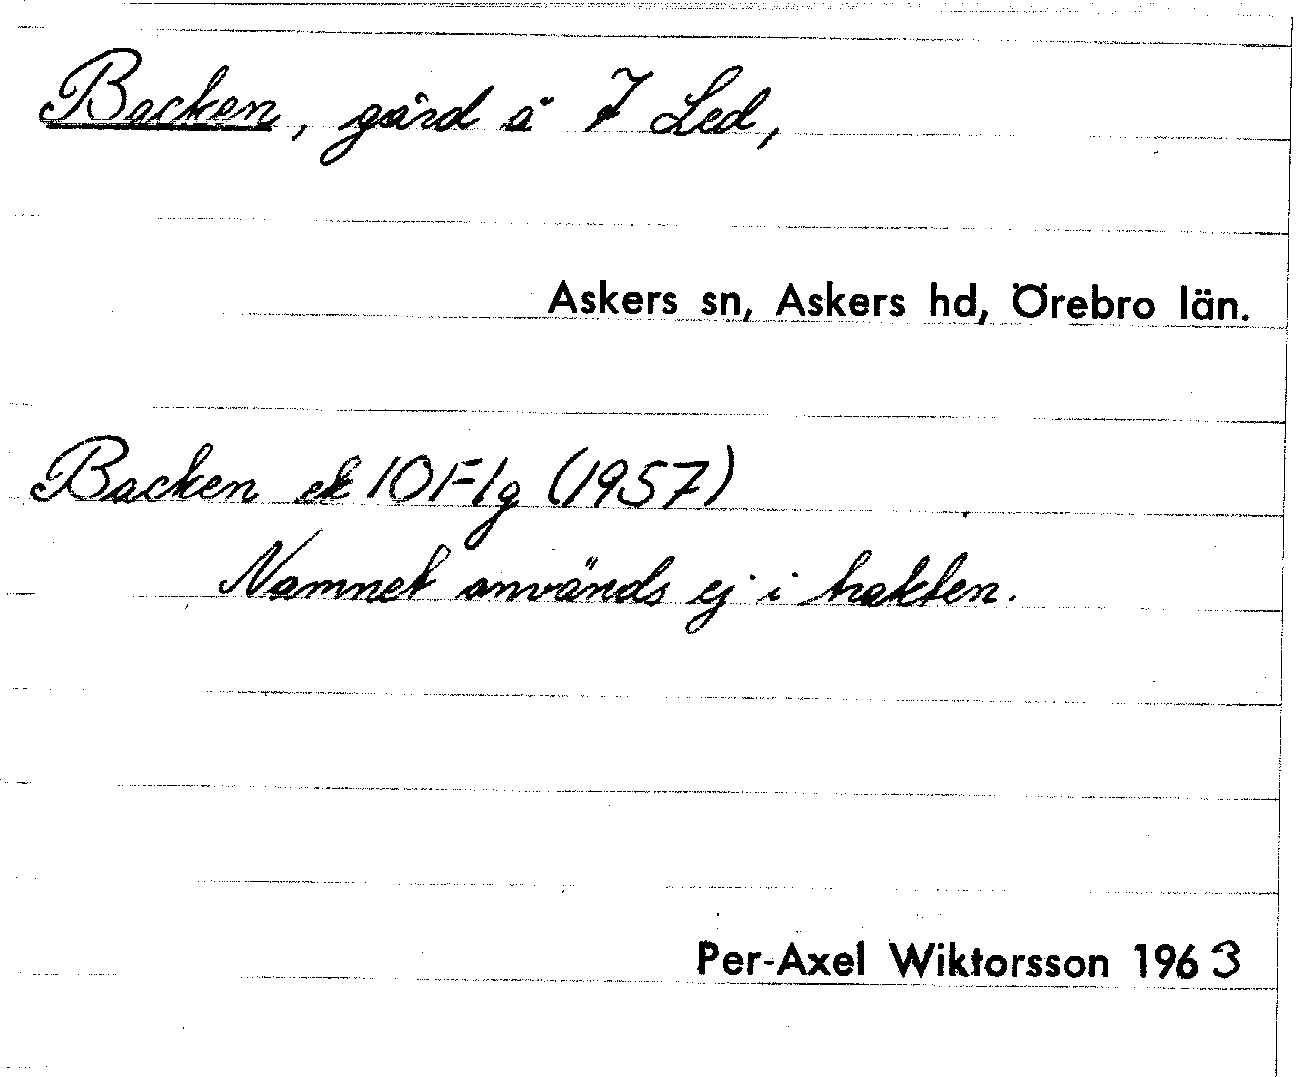 Backen, gård å 7 Led,
Askers sn, Askers hd, Örebro län.
Backen ek 10F1g (1957)
Namnet används ej i trakten.
Per-Axel Wiktorsson 1963